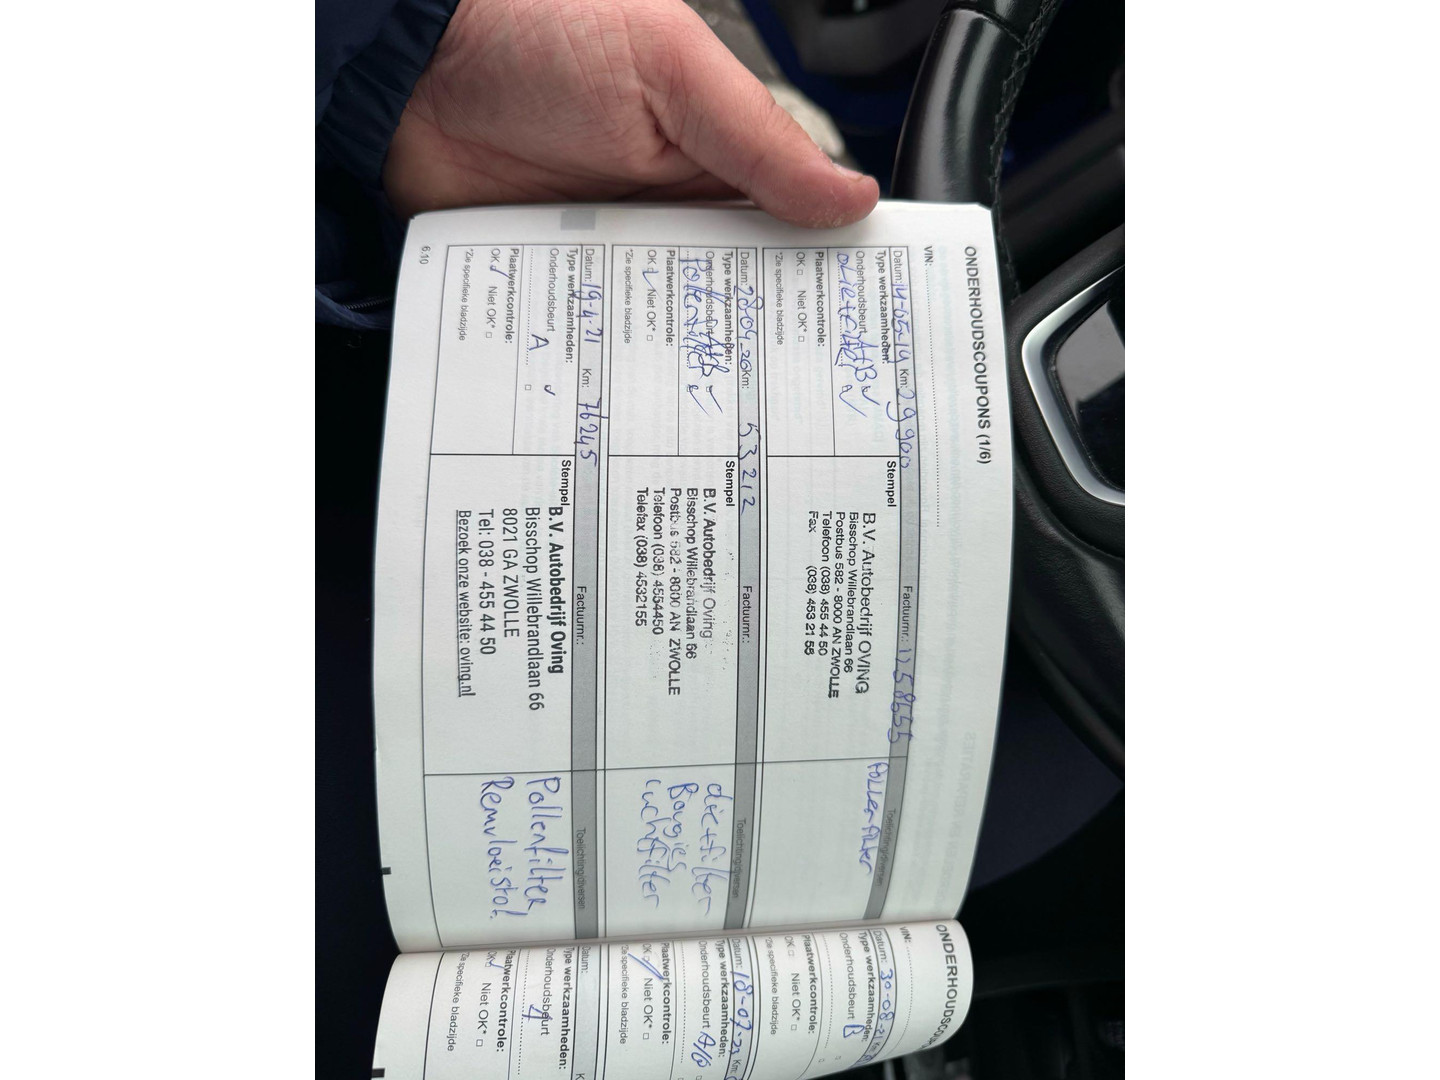 ONDERHOUDSCOUPONS (1/6)
VIN:
Datum: 14-05-19 Km: 29900 Factuurnr.: 1258655 Toelichting/diversen
Type werkzaamheden:
Onderhoudsbeurt
Plaatwerkcontrole:
OK □ Niet OK* □
*Zie specifieke bladzijde
Stempel
B.V. Autobedrijf OVING
Bisschop Willebrandlaan 66
Postbus 582 - 8000 AN ZWOLLE
Telefoon (038) 455 44 50
Fax (038) 453 21 55
Pollenfilter
Datum: 28-04-20 Km: 53212 Factuurnr.: Toelichting/diversen
Type werkzaamheden:
Onderhoudsbeurt
Pollenfilter
Plaatwerkcontrole:
OK Niet OK* □
*Zie specifieke bladzijde
Stempel
B.V. Autobedrijf Oving
Bisschop Willebrandlaan 66
Postbus 582 - 8000 AN ZWOLLE
Telefoon (038) 4554450
Telefax (038) 4532155
Bougies
Luchtfilter
Datum: 19-4-21 Km: 76245 Factuurnr.: Toelichting/diversen
Type werkzaamheden:
Onderhoudsbeurt A
Plaatwerkcontrole:
OK Niet OK* □
*Zie specifieke bladzijde
Stempel
B.V. Autobedrijf Oving
Bisschop Willebrandlaan 66
8021 GA ZWOLLE
Tel: 038 - 455 44 50
Bezoek onze website: oving.nl
Pollenfilter
Remvloeistof
6.10
ONDERHOUDSCO
VIN:
Datum: 30-08-21 Km
Type werkzaamheden:
Onderhoudsbeurt B
Plaatwerkcontrole:
OK □ Niet OK* □
*Zie specifieke bladzijde
Datum: 18-07-23 Km:
Type werkzaamheden:
Onderhoudsbeurt
Plaatwerkcontrole:
OK Niet OK* □
*Zie specifieke bladzijde
Datum: K
Type werkzaamheden:
Onderhoudsbeurt
Plaatwerkcontrole:
OK Niet OK* □
*Zie specifieke bladzijde